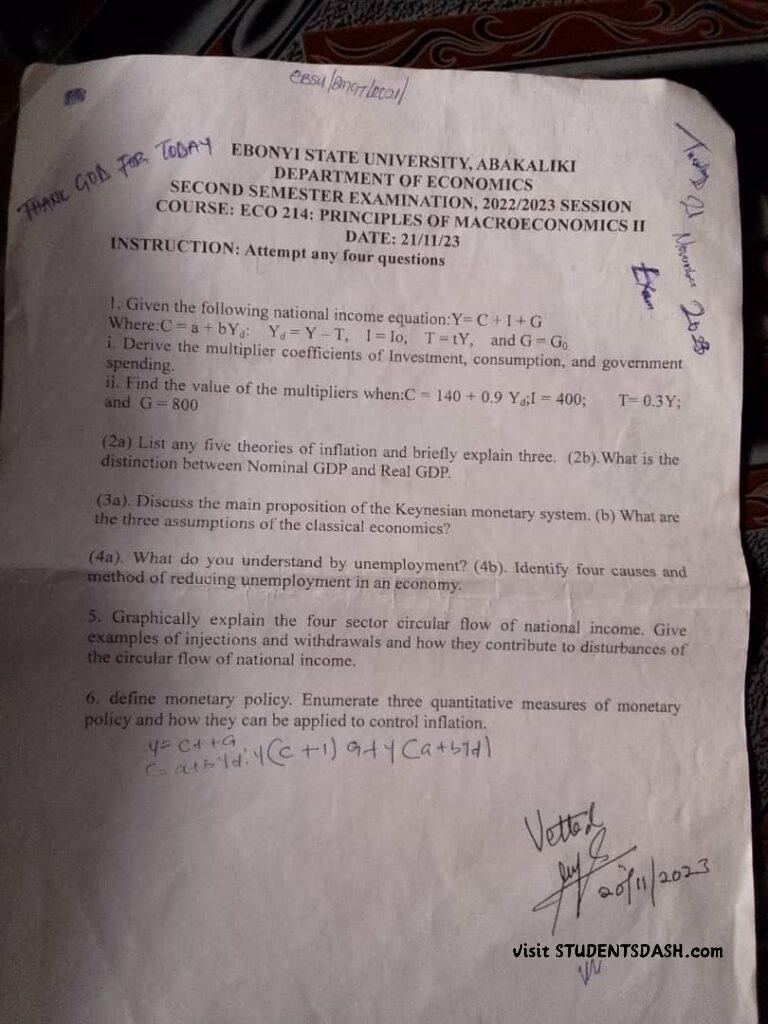 EBSU/BMGT/2021/
THANK GOD FOR TODAY
Tuesday 21 November 2023
Exam
EBONYI STATE UNIVERSITY, ABAKALIKI
DEPARTMENT OF ECONOMICS
SECOND SEMESTER EXAMINATION, 2022/2023 SESSION
COURSE: ECO 214: PRINCIPLES OF MACROECONOMICS II
DATE: 21/11/23
INSTRUCTION: Attempt any four questions
1. Given the following national income equation:Y= C + I + G
Where:C = a + bYd: Yd = Y – T, I = Io, T = tY, and G = G0.
i. Derive the multiplier coefficients of Investment, consumption, and government
spending.
ii. Find the value of the multipliers when:C = 140 + 0.9 Yd;I = 400; T= 0.3Y;
and G = 800
(2a) List any five theories of inflation and briefly explain three. (2b).What is the
distinction between Nominal GDP and Real GDP.
(3a). Discuss the main proposition of the Keynesian monetary system. (b) What are
the three assumptions of the classical economics?
(4a). What do you understand by unemployment? (4b). Identify four causes and
method of reducing unemployment in an economy.
5. Graphically explain the four sector circular flow of national income. Give
examples of injections and withdrawals and how they contribute to disturbances of
the circular flow of national income.
6. define monetary policy. Enumerate three quantitative measures of monetary
policy and how they can be applied to control inflation.
Y= C++G
C= a+bYd: Y(C +1) G+Y(a+bYd)
Vetted
20/11/2023
visit STUDENTSDASH.com